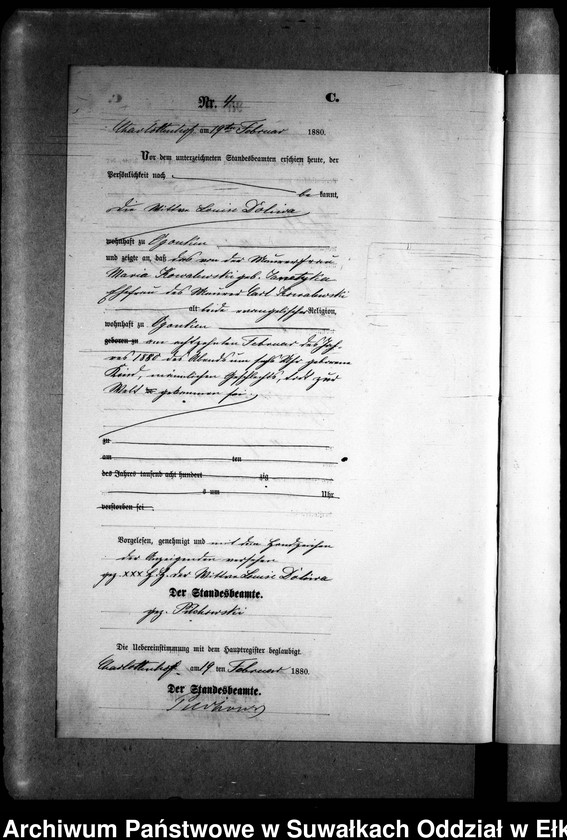 Nr. 4. C.
Charlottenhof, am 19ten Februar 1880.
Vor dem unterzeichneten Standesbeamten erschien heute, der
Persönlichkeit nach
be kannt,
die Wittwe Louise Doliwa
wohnhaft zu Gonsken
und zeigte an, daß das von der Maurerfrau
Maria Kowalewski geb.
Ehefrau des Maurer Carl Kowalewski
alt beide evangelischer Religion,
wohnhaft zu Gonsken
geboren zu am achtzehnten Februar des Jah-
res 1880 des Abends um sechs Uhr geborene
Kind, männlichen Geschlechts, todt zur
Welt gekommen sei.
zu
am ten
des Jahres tausend acht hundert zig
s um Uhr
verstorben sei
Vorgelesen, genehmigt und mit dem Handzeichen
der Anzeigenden versehen
gez. xxx H. Z. der Wittwe Louise Doliwa
Der Standesbeamte.
gez.
Die Uebereinstimmung mit dem Hauptregister beglaubigt
Charlottenhof, am 19 ten Februar 1880.
Der Standesbeamte.
Archiwum Państwowe w Suwałkach Oddział w Ełk